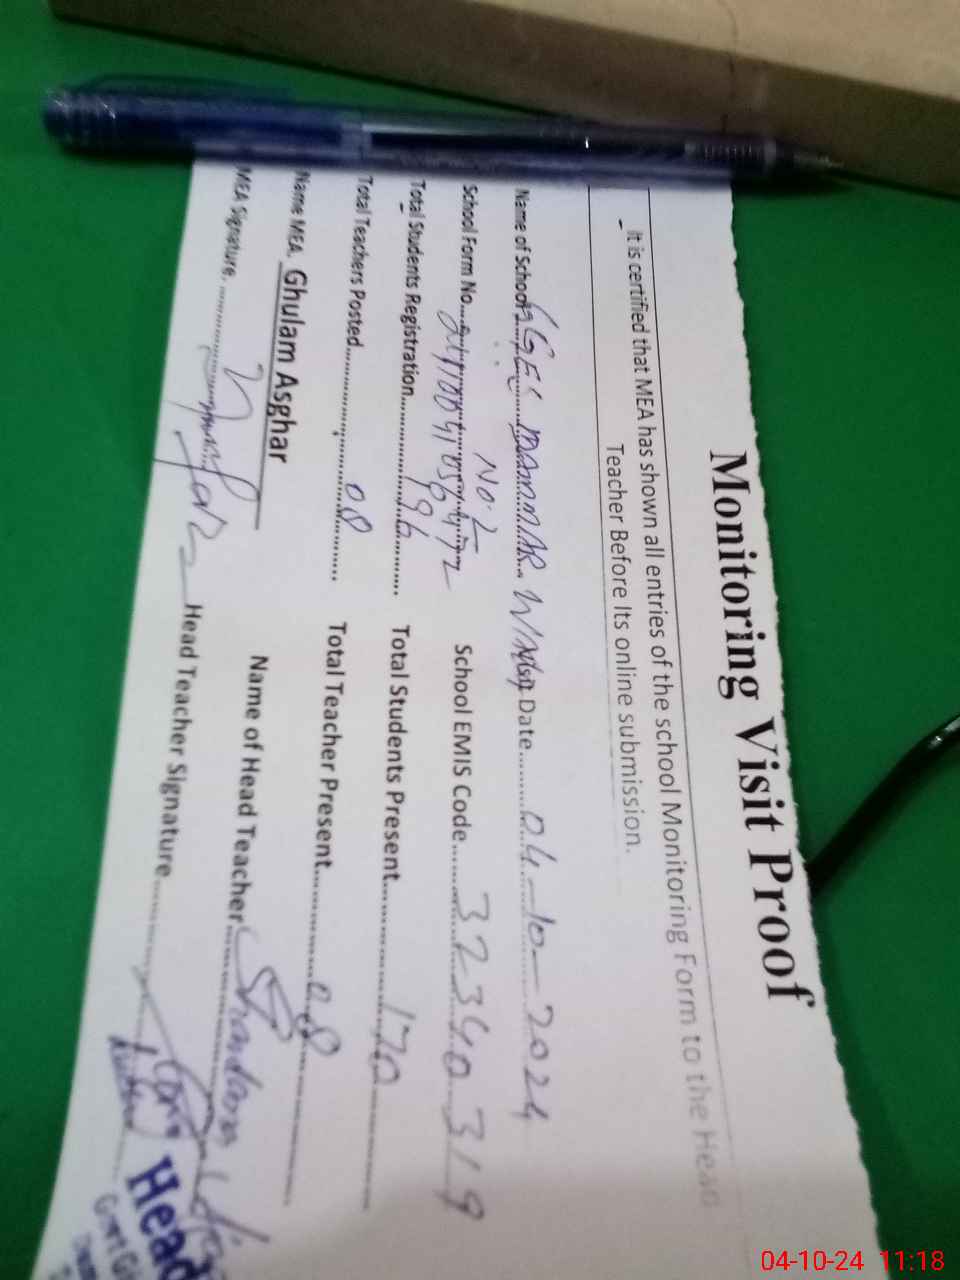 Monitoring Visit Proof
It is certified that MEA has shown all entries of the school Monitoring Form to the Head
Teacher Before Its online submission.
Name of School GGES Date 04-10-2024
No.2
School Form No. School EMIS Code 32340319
Total Students Registration 196 Total Students Present 170
Total Teachers Posted 08 Total Teacher Present 08
Name MEA. Ghulam Asghar Name of Head Teacher
MEA Signature. Head Teacher Signature
Head
04-10-24 11:18